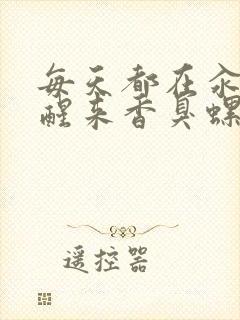 每天都在汆
醒来香臭螺
遥控器